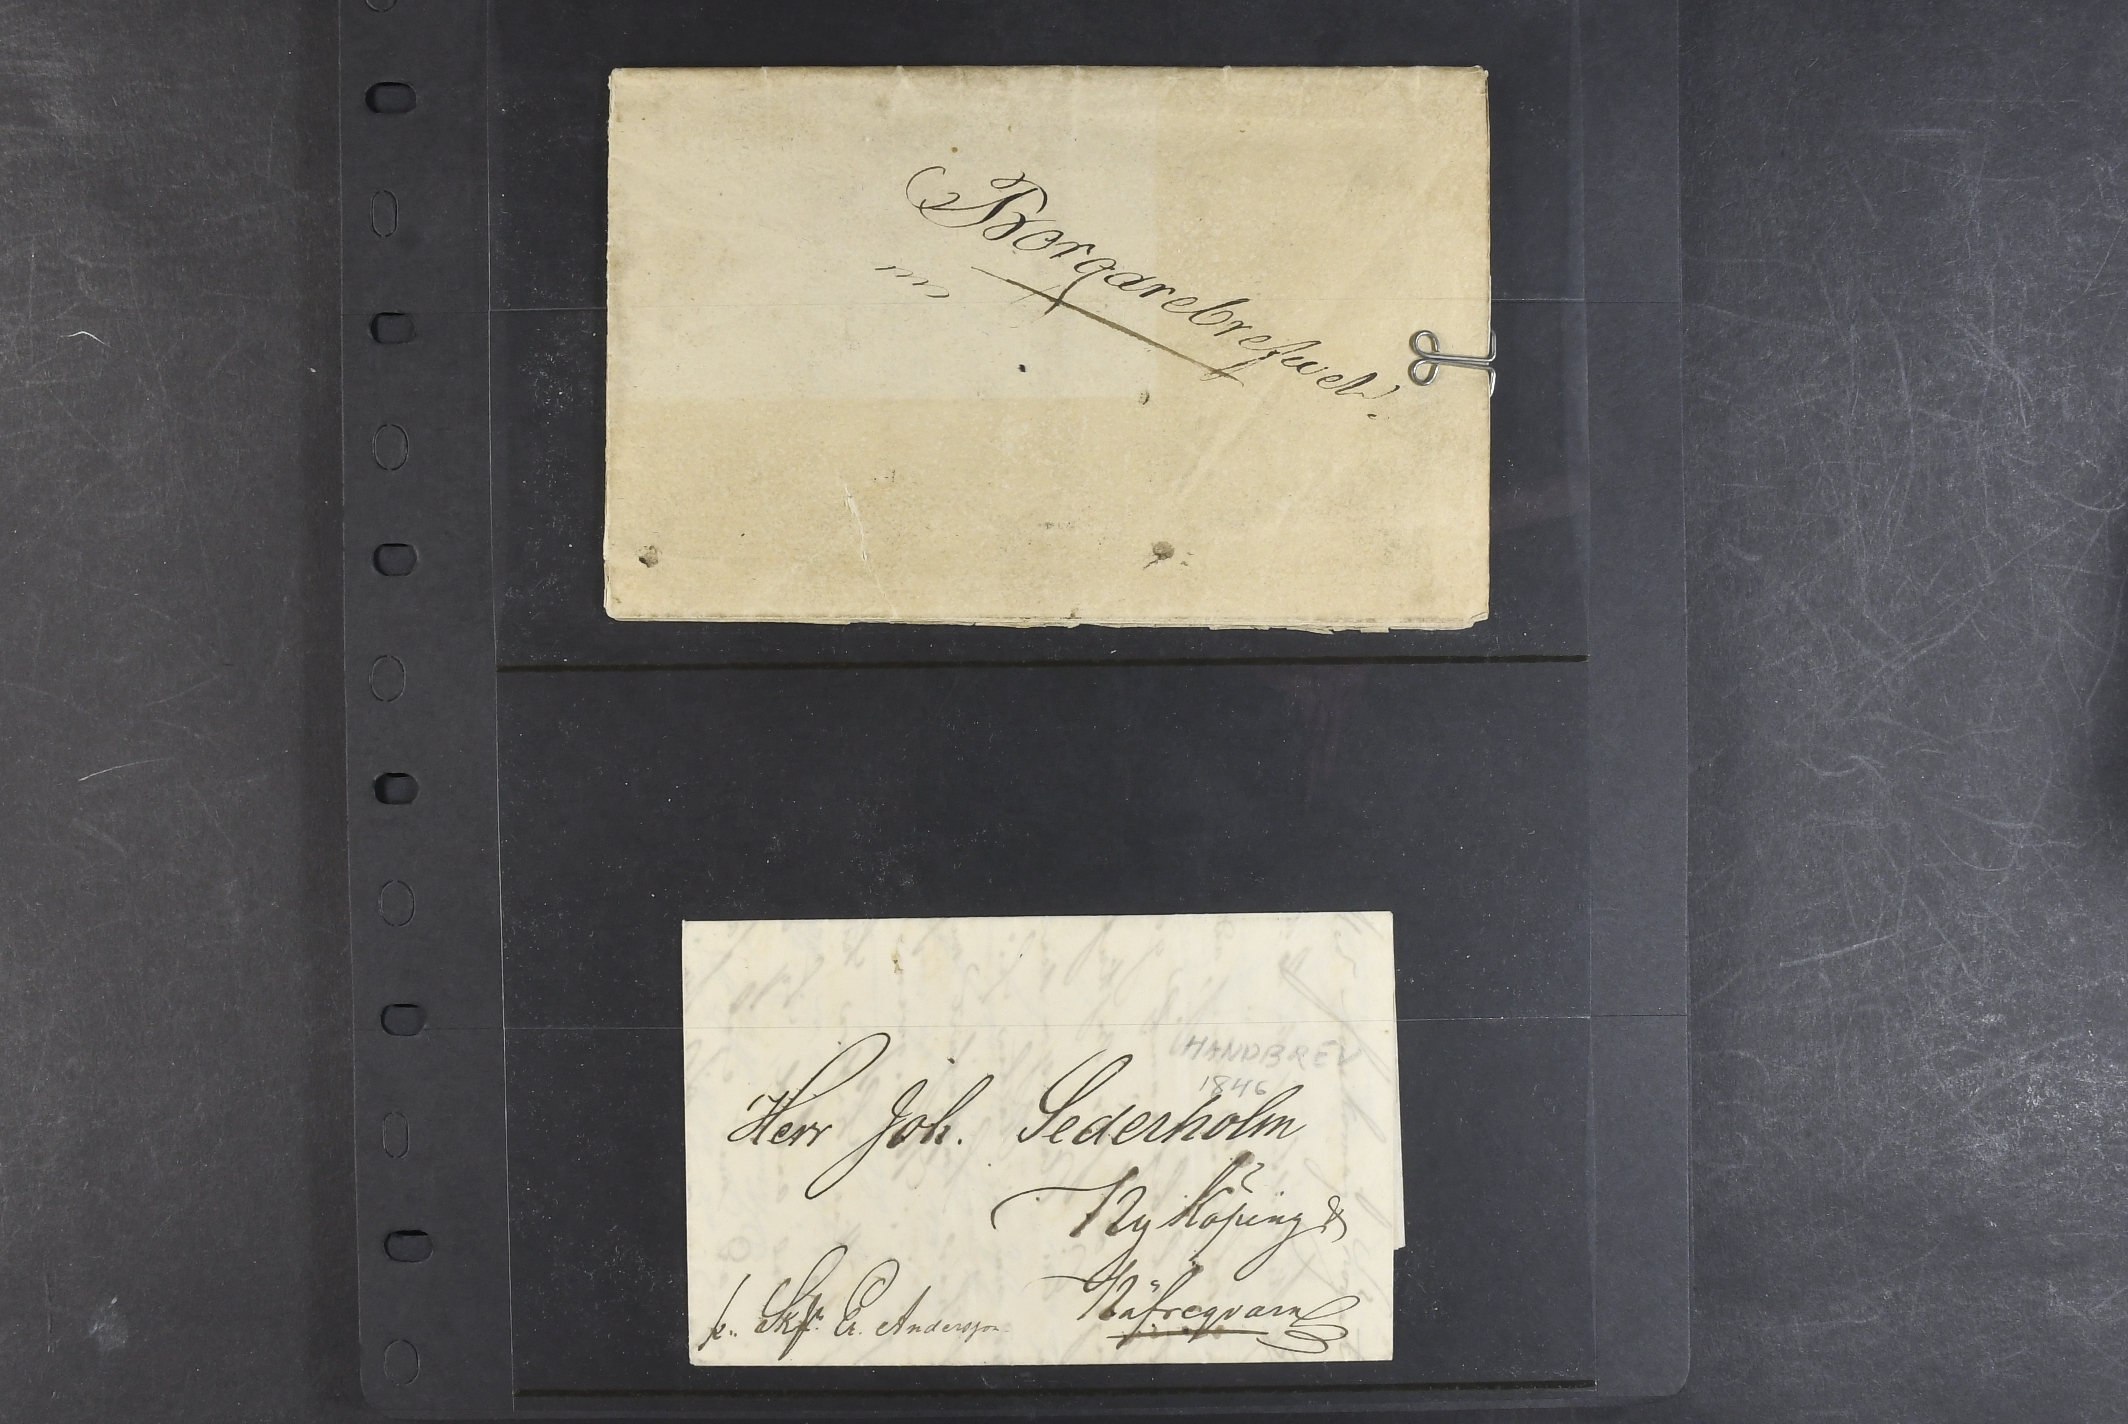 Borgarebrefwet.
HANDBREV
1846
Herr Joh. Sederholm
Nyköping &
Näfreqvarn
pr. Skpr. Er. Andersson